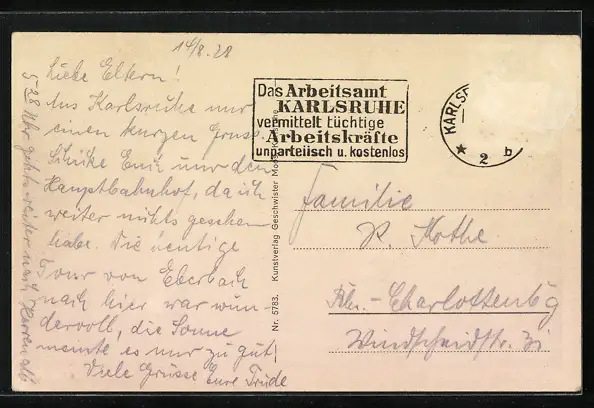 14/8.28
Liebe Eltern!
Aus Karlsruhe nur
einen kurzen Gruss.
Schicke Euch nur den
Hauptbahnhof, da ich
weiter nichts gesehen
habe. Die heutige
Tour von Eberbach
nach hier war wun-
dervoll, die Sonne
meinte es nur zu gut!
Viele Grüsse Eure Trude
5 28 Uhr geht's weiter nach
Das Arbeitsamt
KARLSRUHE
vermittelt tüchtige
Arbeitskräfte
unparteiisch u. kostenlos
KARLSR
* 2 b
Nr. 5783. Kunstverlag Geschwister Moos, Karlsruhe
Familie
P. Kothe
Bln.-Charlottenbg
Windscheidstr. 31